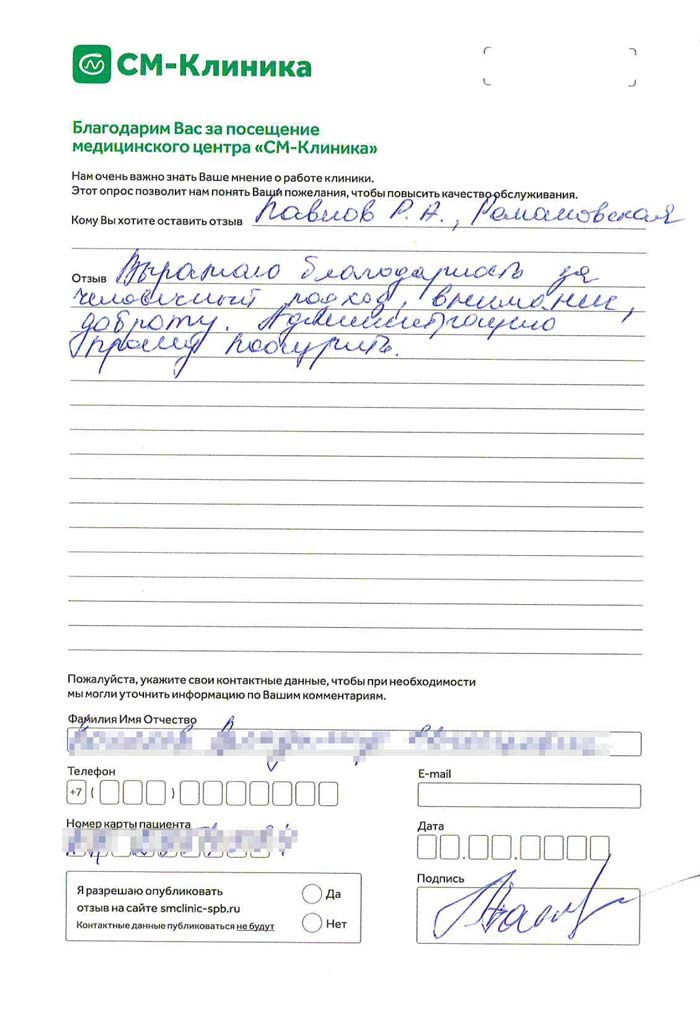 СМ-Клиника
Благодарим Вас за посещение
медицинского центра «СМ-Клиника»
Нам очень важно знать Ваше мнение о работе клиники.
Этот опрос позволит нам понять Ваши пожелания, чтобы повысить качество обслуживания.
Кому Вы хотите оставить отзыв Павлов Р. А., Романовская
Отзыв Выражаю благодарность за
человечный подход, внимание,
доброту. Администрацию
прошу поощрить.
Пожалуйста, укажите свои контактные данные, чтобы при необходимости
мы могли уточнить информацию по Вашим комментариям.
Фамилия Имя Отчество
Телефон
E-mail
+7 ( )
Номер карты пациента
Дата
Подпись
Я разрешаю опубликовать
отзыв на сайте smclinic-spb.ru
Контактные данные публиковаться не будут
Да
Нет